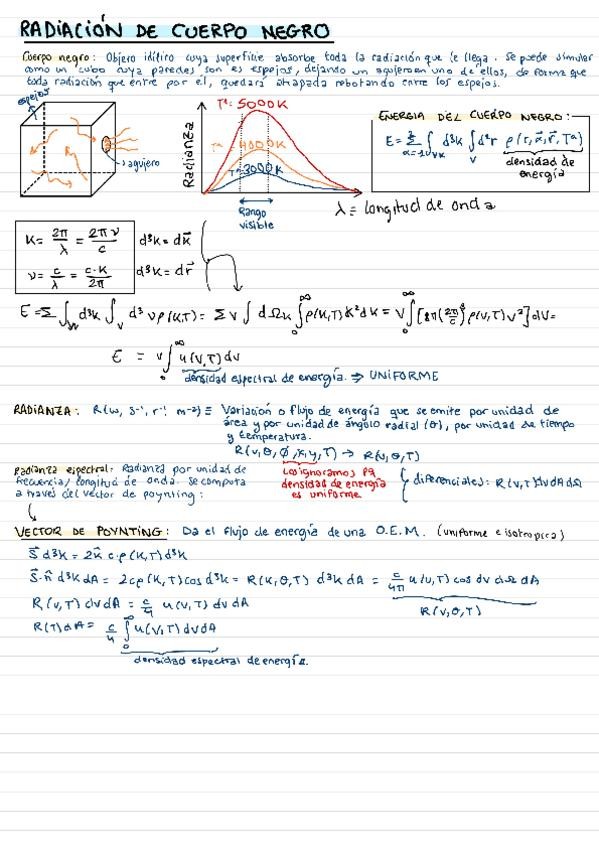 RADIACIÓN DE CUERPO NEGRO
Cuerpo negro: Objeto idílico cuya superficie absorbe toda la radiación que le llega. Se puede simular
como un cubo cuya paredes son es espejos, dejando un agujero en uno de ellos, de forma que
toda radiación que entre por el, quedará atrapada rebotando entre los espejos.
espejos
agujero
Radianza
Tª: 5000K
Tª = 4000K
Tª = 3000K
Rango
visible
λ = longitud de onda
ENERGIA DEL CUERPO NEGRO:
densidad de
energía
K = 2π/λ = 2πν/c
d³K = dK⃗
ν = c/λ = c·K/2π
d³K = dr⃗
E = V∫₀^∞ u(ν,T)dν
densidad espectral de energía. ⇒ UNIFORME
RADIANZA: R(w, s⁻¹, r⁻¹ m⁻²) ≡ Variación o flujo de energía que se emite por unidad de
área y por unidad de ángulo radial (θ), por unidad de tiempo
y temperatura.
R(ν,θ,ϕ,x,y,T) → R(ν,θ,T)
Radianza espectral: Radianza por unidad de
frecuencia/longitud de onda. Se computa
a través del vector de poynting:
Los ignoramos pq
densidad de energía
es uniforme
diferenciales: R(ν,T)dν dA dΩ
VECTOR DE POYNTING: Da el flujo de energía de una O.E.M. (uniforme e isotropica)
S⃗ d³K = 2k̂ c·ρ(K,T)d³K
S⃗·n̂ d³K dA = 2cρ(K,T)cos d³K = R(K,θ,T) d³K dA = c/4π u(ν,T) cos dν dΩ dA
R(ν,θ,T)
R(ν,T) dν dA = c/4 u(ν,T) dν dA
R(T)dA = c/4 ∫₀^∞ u(ν,T)dν dA
densidad espectral de energía.